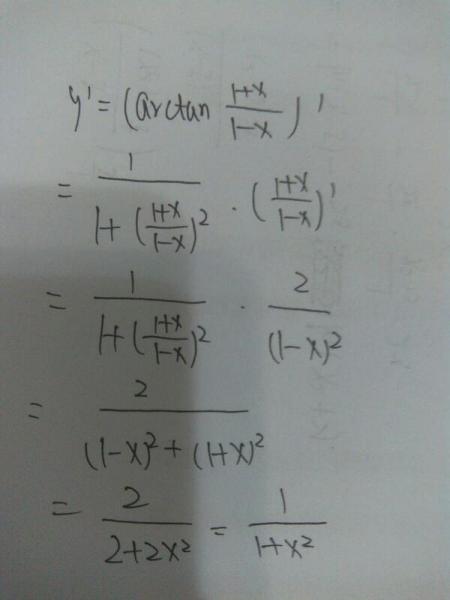 y' = (arctan \frac{1+x}{1-x})'
= \frac{1}{1+(\frac{1+x}{1-x})^2} \cdot (\frac{1+x}{1-x})'
= \frac{1}{1+(\frac{1+x}{1-x})^2} \cdot \frac{2}{(1-x)^2}
= \frac{2}{(1-x)^2+(1+x)^2}
= \frac{2}{2+2x^2} = \frac{1}{1+x^2}